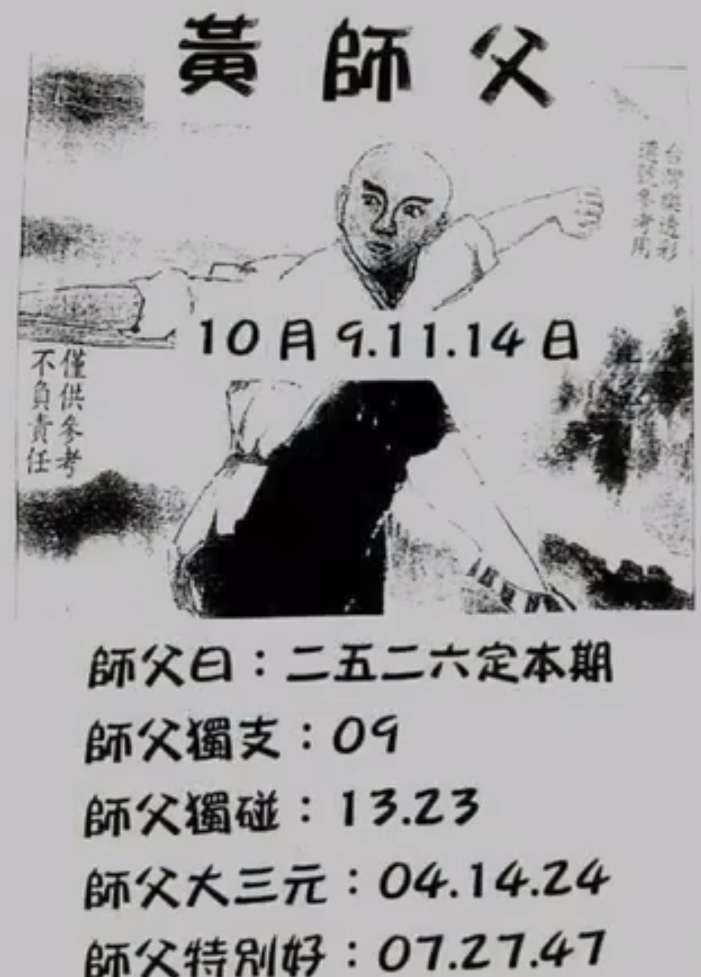 黃師父
台灣樂透彩
選號參考用
10月9.11.14日
僅供參考
不負責任
師父曰：二五二六定本期
師父獨支：09
師父獨碰：13.23
師父大三元：04.14.24
師父特別好：07.27.47